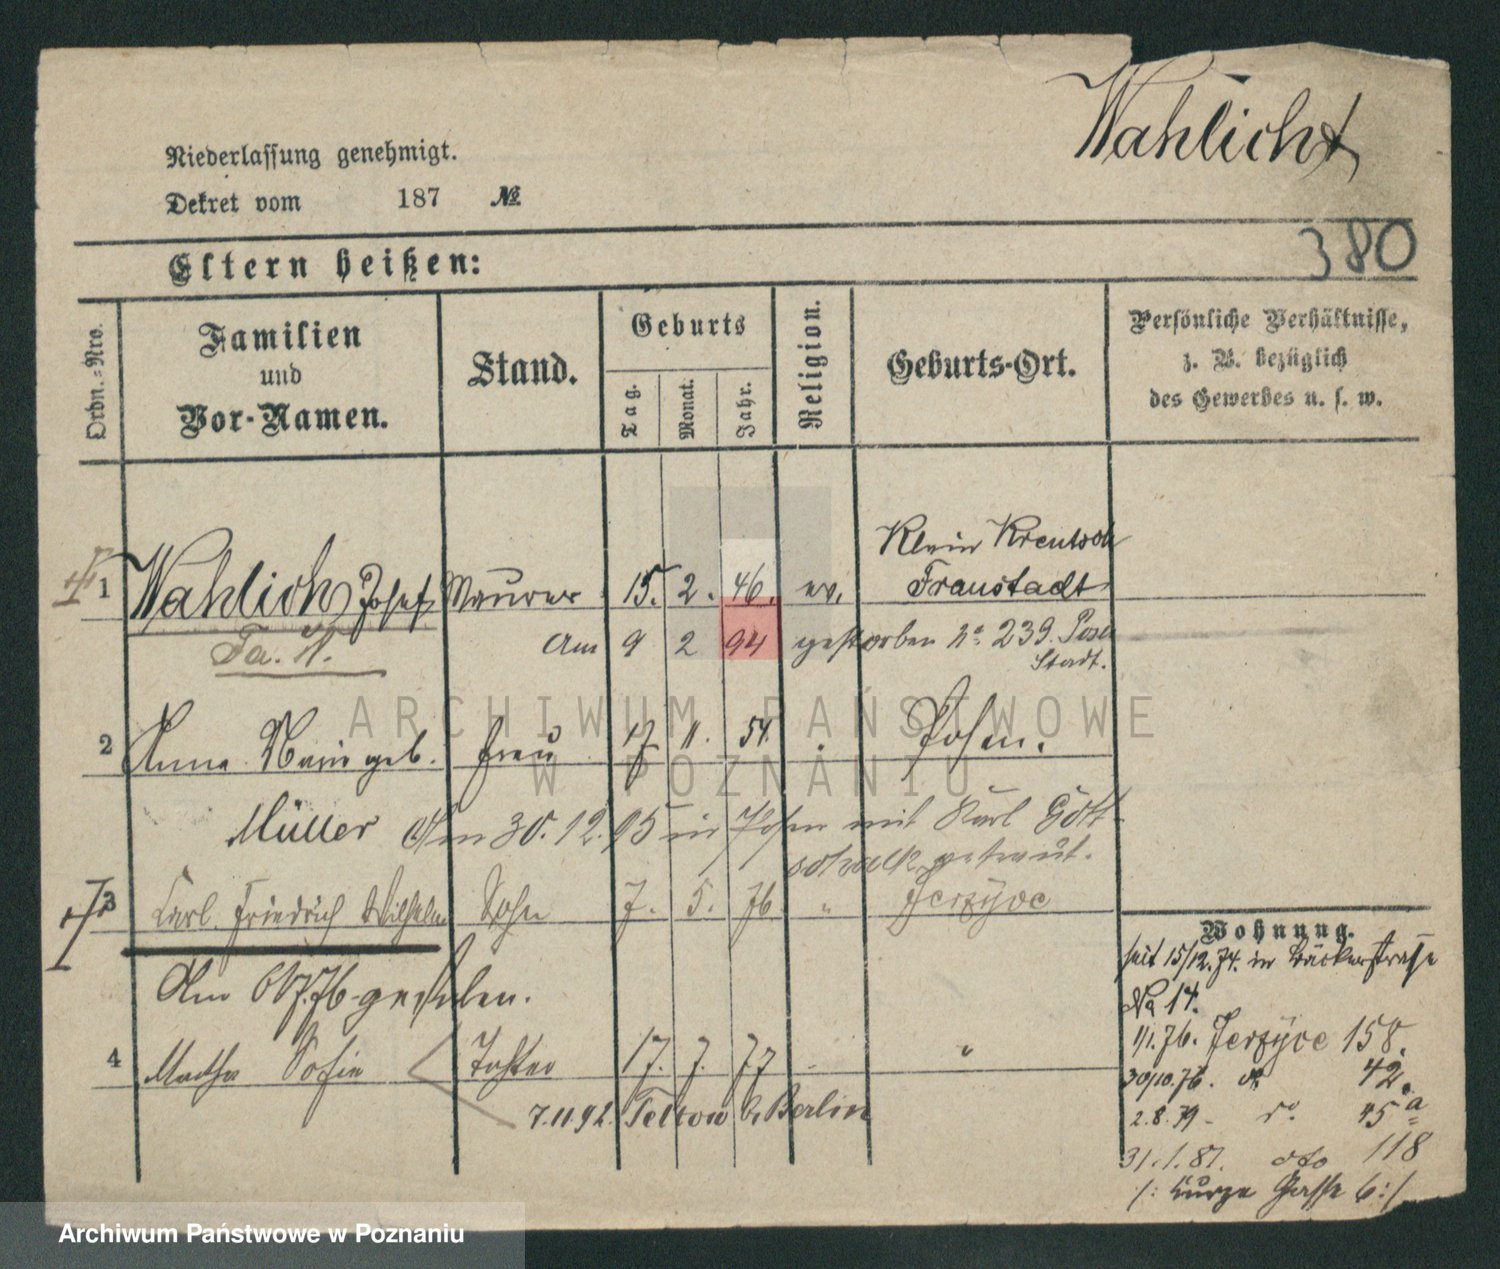 Wahlicht
Niederlassung genehmigt.
Dekret vom 187 №
380
Eltern heißen:
Ordn.=Nro.
Familien
und
Vor-Namen.
Stand.
Geburts
Tag.
Monat.
Jahr.
Religion.
Geburts-Ort.
Persönliche Verhältnisse,
z. B. bezüglich
des Gewerbes u. s. w.
Klein Kreutsch
1 Wahlich Josef Maurer 15. 2. 46. ev. Fraustadt
Am 9 2 94 gestorben No 239. Posen
Stadt.
2 Anna Marie geb. Frau 17 11. 54. Posen.
Müller Am 30. 12. 95 in Posen mit Karl Gott-
schalk getraut.
3 Carl Friedrich Wilhelm Sohn 7. 5. 76 " Jerzyce
Am 6/7.76 gestorben.
4 Martha Sofie Tochter 17. 7. 77 "
7.11.92. Teltow b. Berlin
Wohnung.
seit 15/12.74. in Bäckerstraße
No 14.
1/1.76. Jerzyce 158.
30/10.76. 42.
2.8.79 - do 45 a
31.1.81. dto 118
/: Kurze Gasse 6 :/
ARCHIWUM PAŃSTWOWE
W POZNANIU
Archiwum Państwowe w Poznaniu